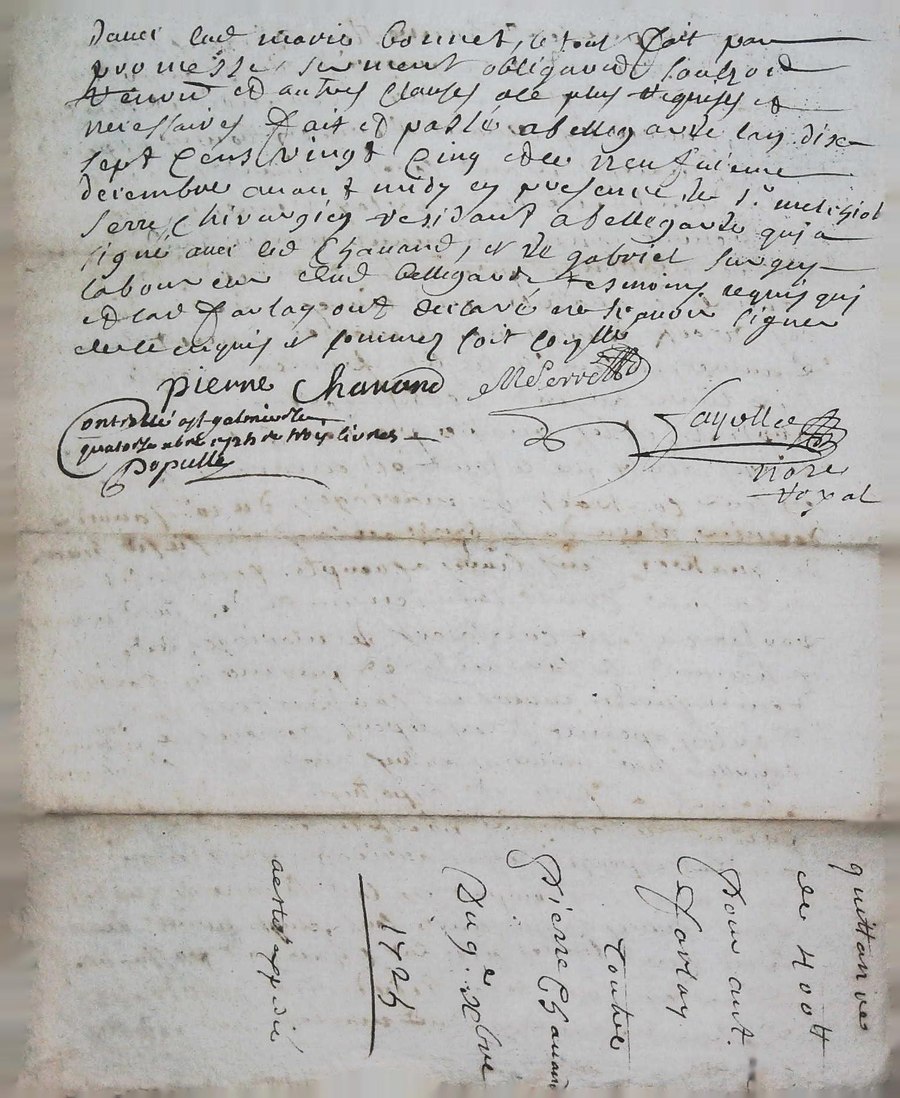 D'avec lad marie bonnet, le tout fait par
promesse serment obligaõn soubzd
renond et autres clauses ale plus requises et
necessaires fait et passé abellegarde lan dix
sept cens vingt cinq et le neufvieme
decembre avant midy en presence de Sr. melchiol
Serre, Chirurgien residant abellegarde qui a
signé avec led Chavand, et de gabriel
laboureur dud bellegarde tesmoins requis qui
et lad ont declaré ne sçavoir signer
de ce enquis et sommez soit
pierre Chavand MSerre
Controllé a st galmier le
quatorze xbre 1725 Rx trois livres
Populle
Fayolle
nore
royal
quittance
de 400 lt
Pour ant.
Contre
Pierre Chavand
Du 9e. Xbre
1725